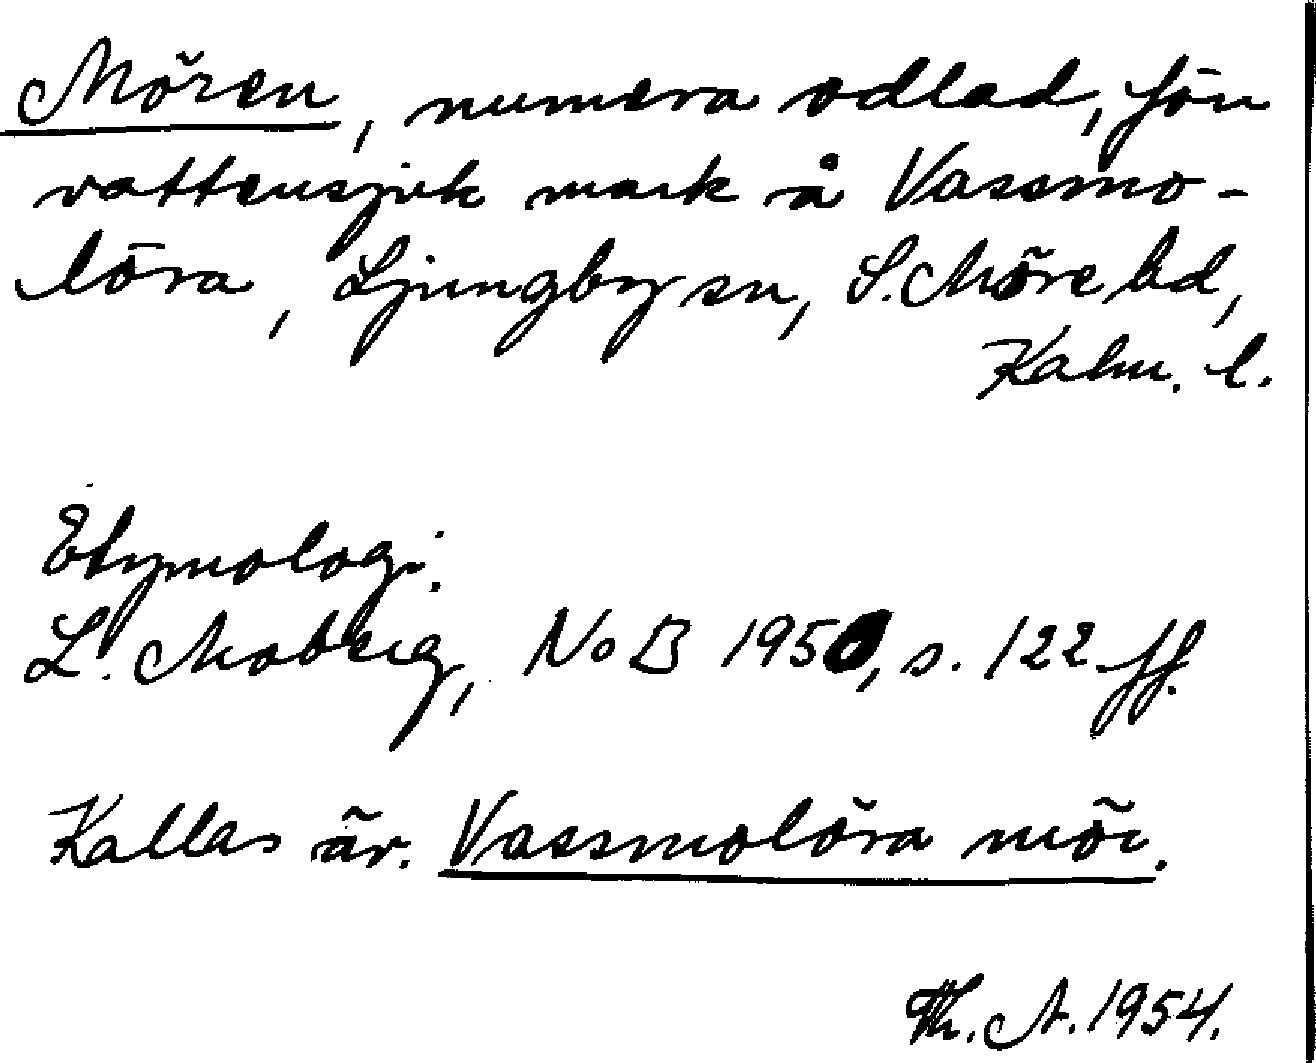 Mören, numera odlad, förr
vattensjuk mark å Vassmo-
löra, Ljungby sn, S. Möre hd,
Kalm. l.
Etymologi.
L. Moberg, NoB 1950, s. 122 ff.
Kallas äv. Vassmolöra mör.
Th. A. 1954.